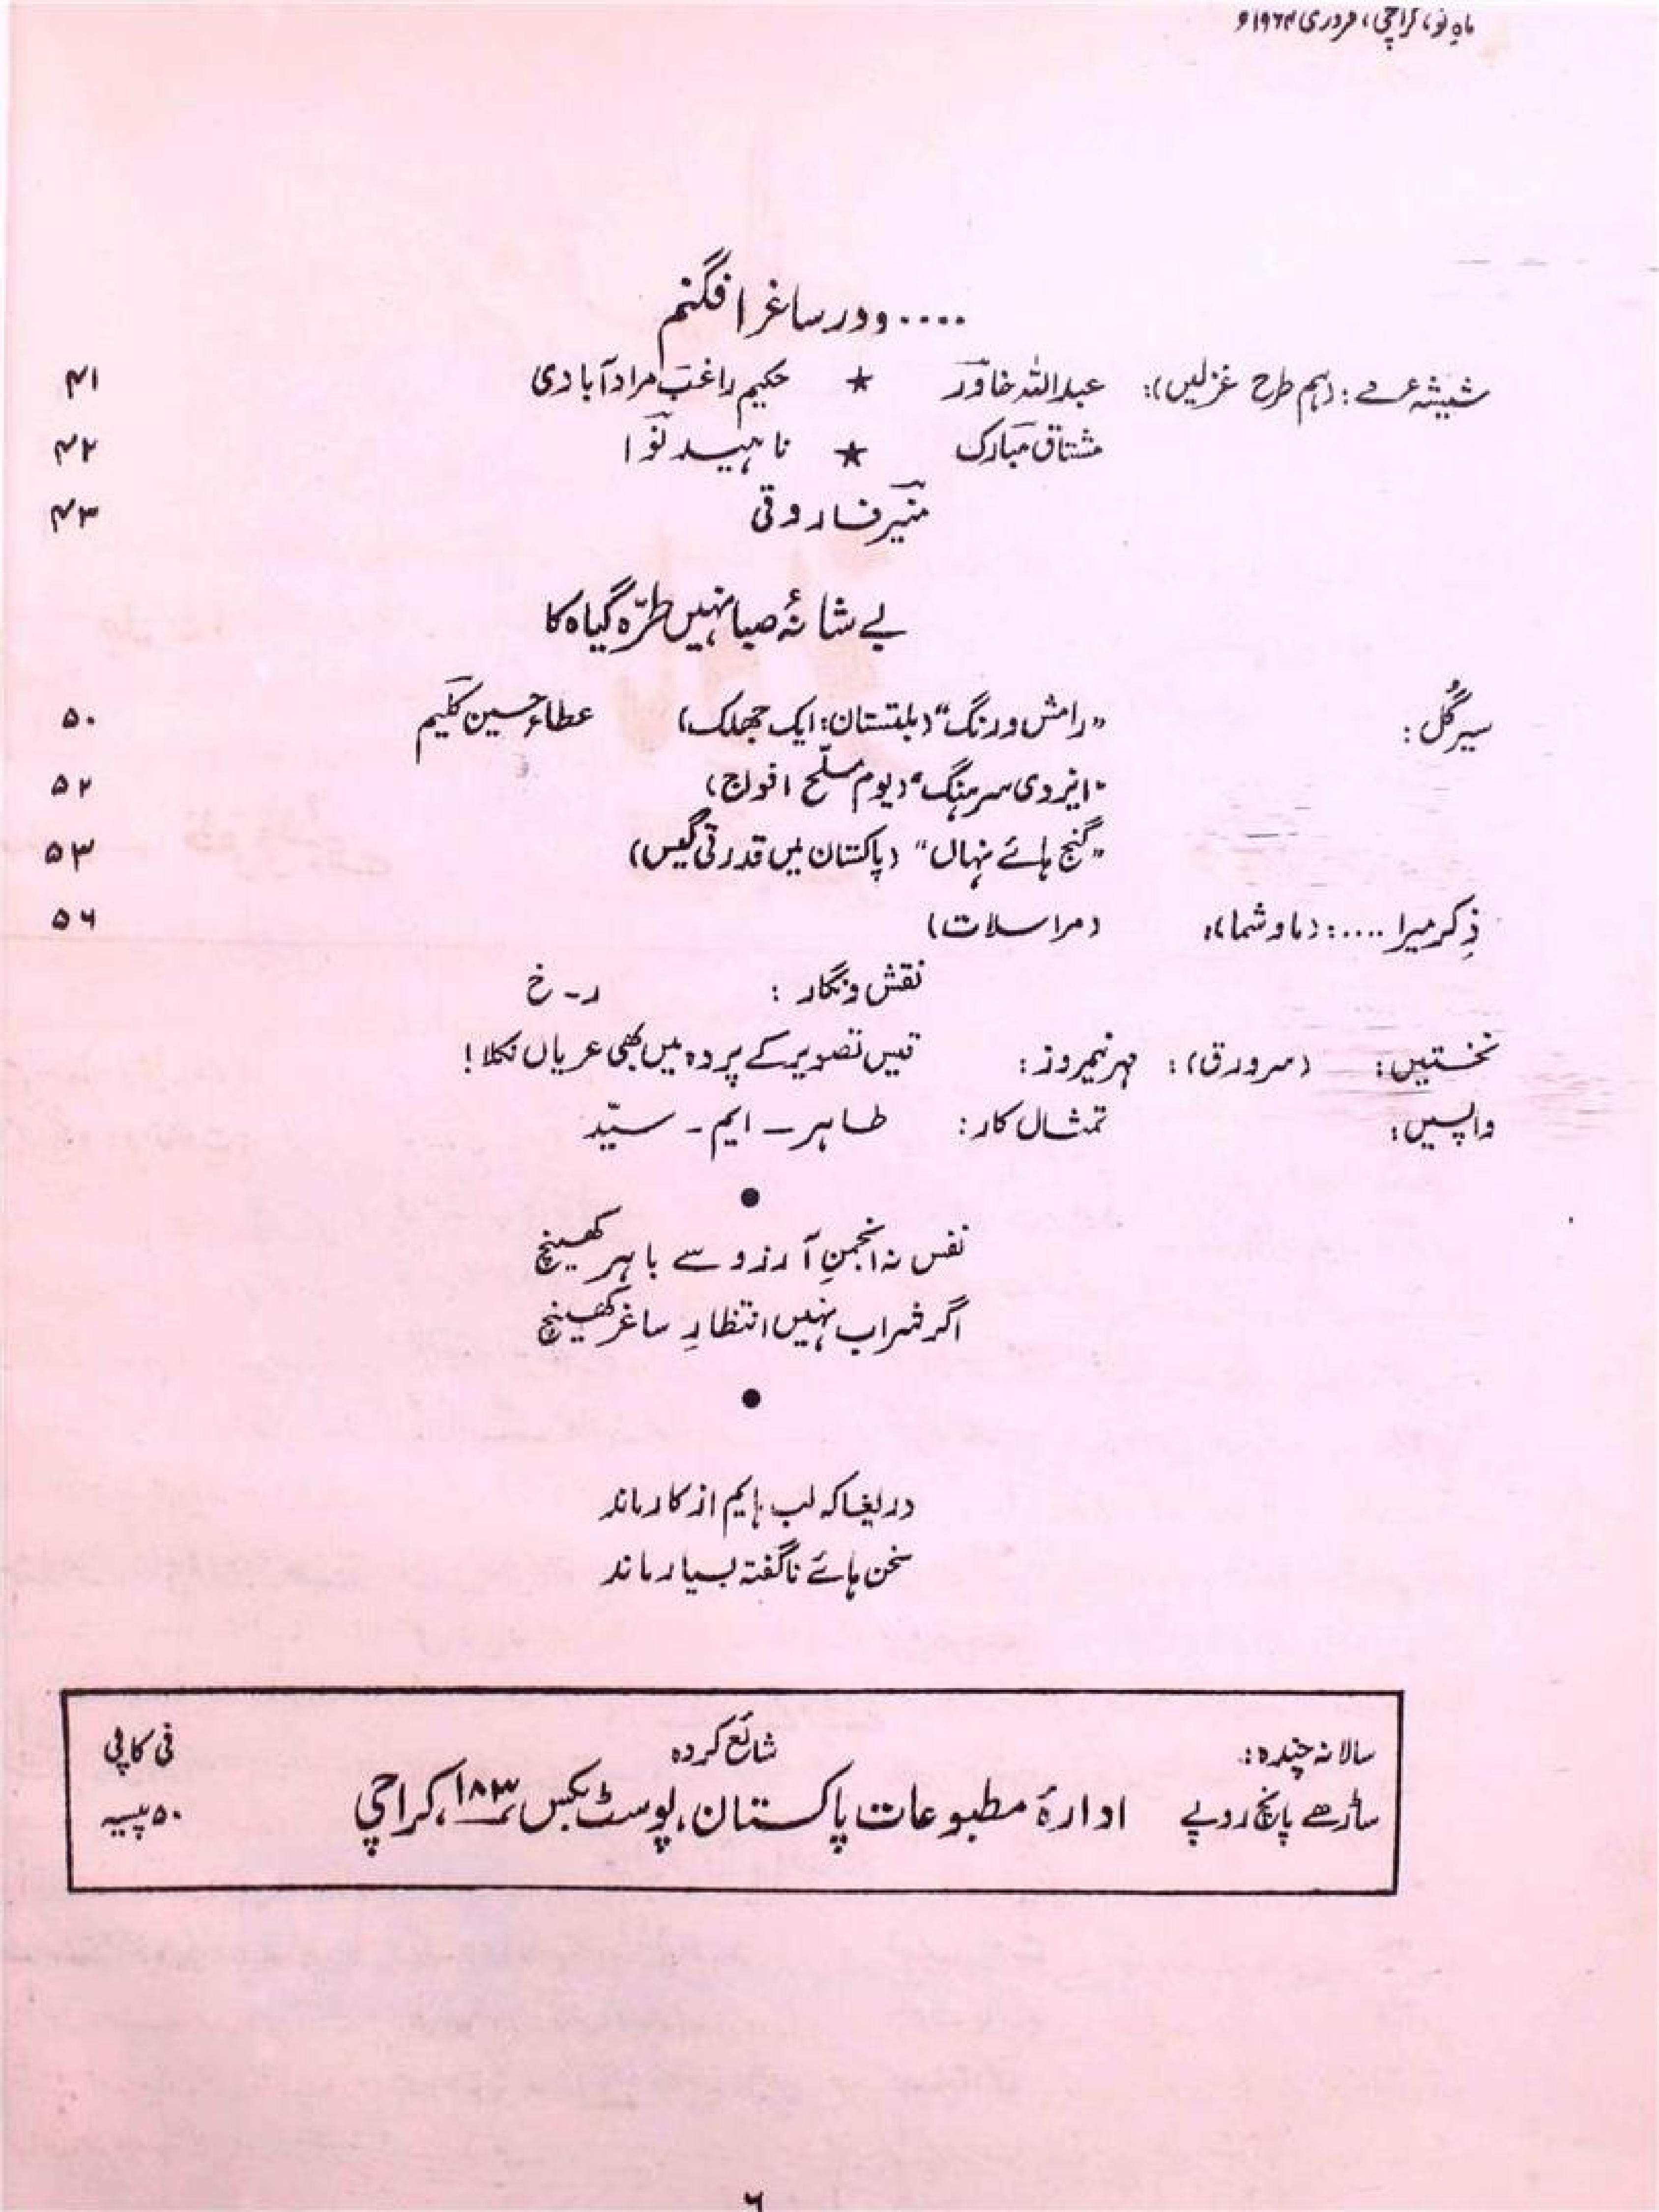 ماہِ نو، کراچی، فروری ۱۹۶۴ء
.... و در ساغر افگنم
شیشہ مے: (ہم طرح غزلیں): عبداللہ خاور ★ حکیم راغب مرادآبادی ۴۱
مشتاق مبارک ★ ناہید نوا ۴۲
منیر فاروقی ۴۳
بے شانۂ صبا نہیں طرّہ گیاہ کا
سیرِ گُل: "رامش و رنگ" (بلتستان: ایک جھلک) عطاء حسین کلیم ۵۰
"ایزدی سرہنگ" (یوم مسلّح افواج) ۵۲
"گنج ہائے نہاں" (پاکستان میں قدرتی گیس) ۵۳
ذِکر میرا ....: (ما و شما): (مراسلات) ۵۶
نقش و نگار: ر۔ خ
نخستیں: (سرورق): مہر نیمروز: قیس تصویر کے پردہ میں بھی عریاں نکلا!
واپسیں: تمثال کار: طاہر ۔ ایم ۔ سیّد
●
نفس نہ انجمنِ آرزو سے باہر کھینچ
اگر شراب نہیں انتظارِ ساغر کھینچ
●
دریغا کہ لب ہایم از کار ماند
سخن ہائے ناگفتہ بسیار ماند
سالانہ چندہ: شائع کردہ فی کاپی
ساڑھے پانچ روپے ادارۂ مطبوعات پاکستان، پوسٹ بکس نمبر ۱۸۳، کراچی ۵۰ پیسہ
۶